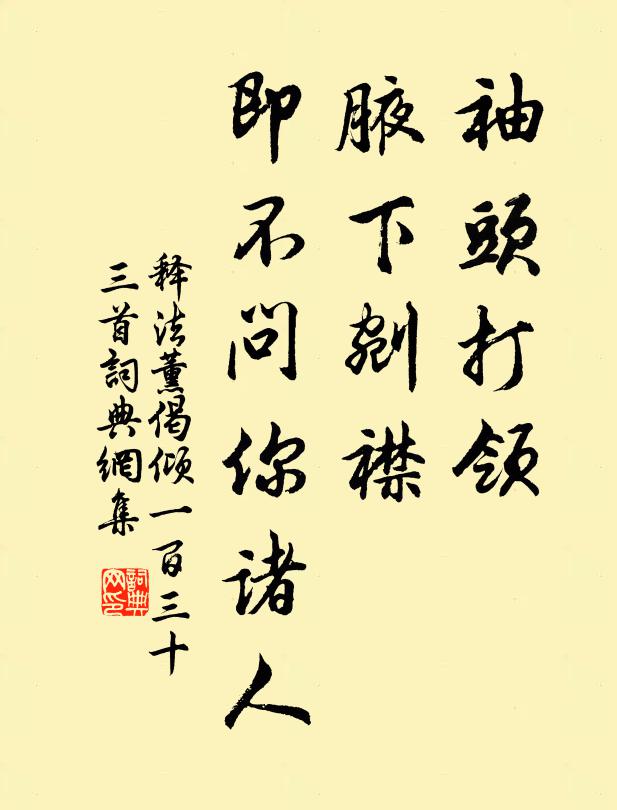 袖頭打領
腋下剜襟
即不問你諸人
释法薰偈倾一百三十
三首詞典網集
詞典网印